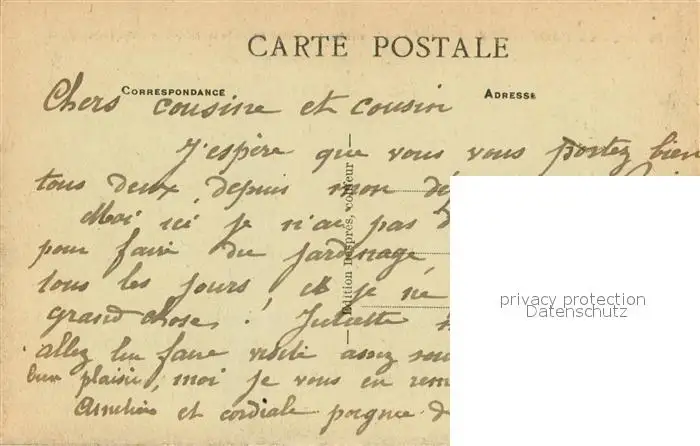 CARTE POSTALE
CORRESPONDANCE
ADRESSE
Chers cousine et cousin
J'espère que vous vous portez bien
tous deux, depuis mon dé
Moi ici je n'ai pas
pour faire du jardinage
tous les jours, et je ne
grand chose! Juliette
allez lui faire visite assez sou
bien plaisir, moi je vous en rem
et cordiale poignée d
Edition Després, coiffeur
privacy protection
Datenschutz